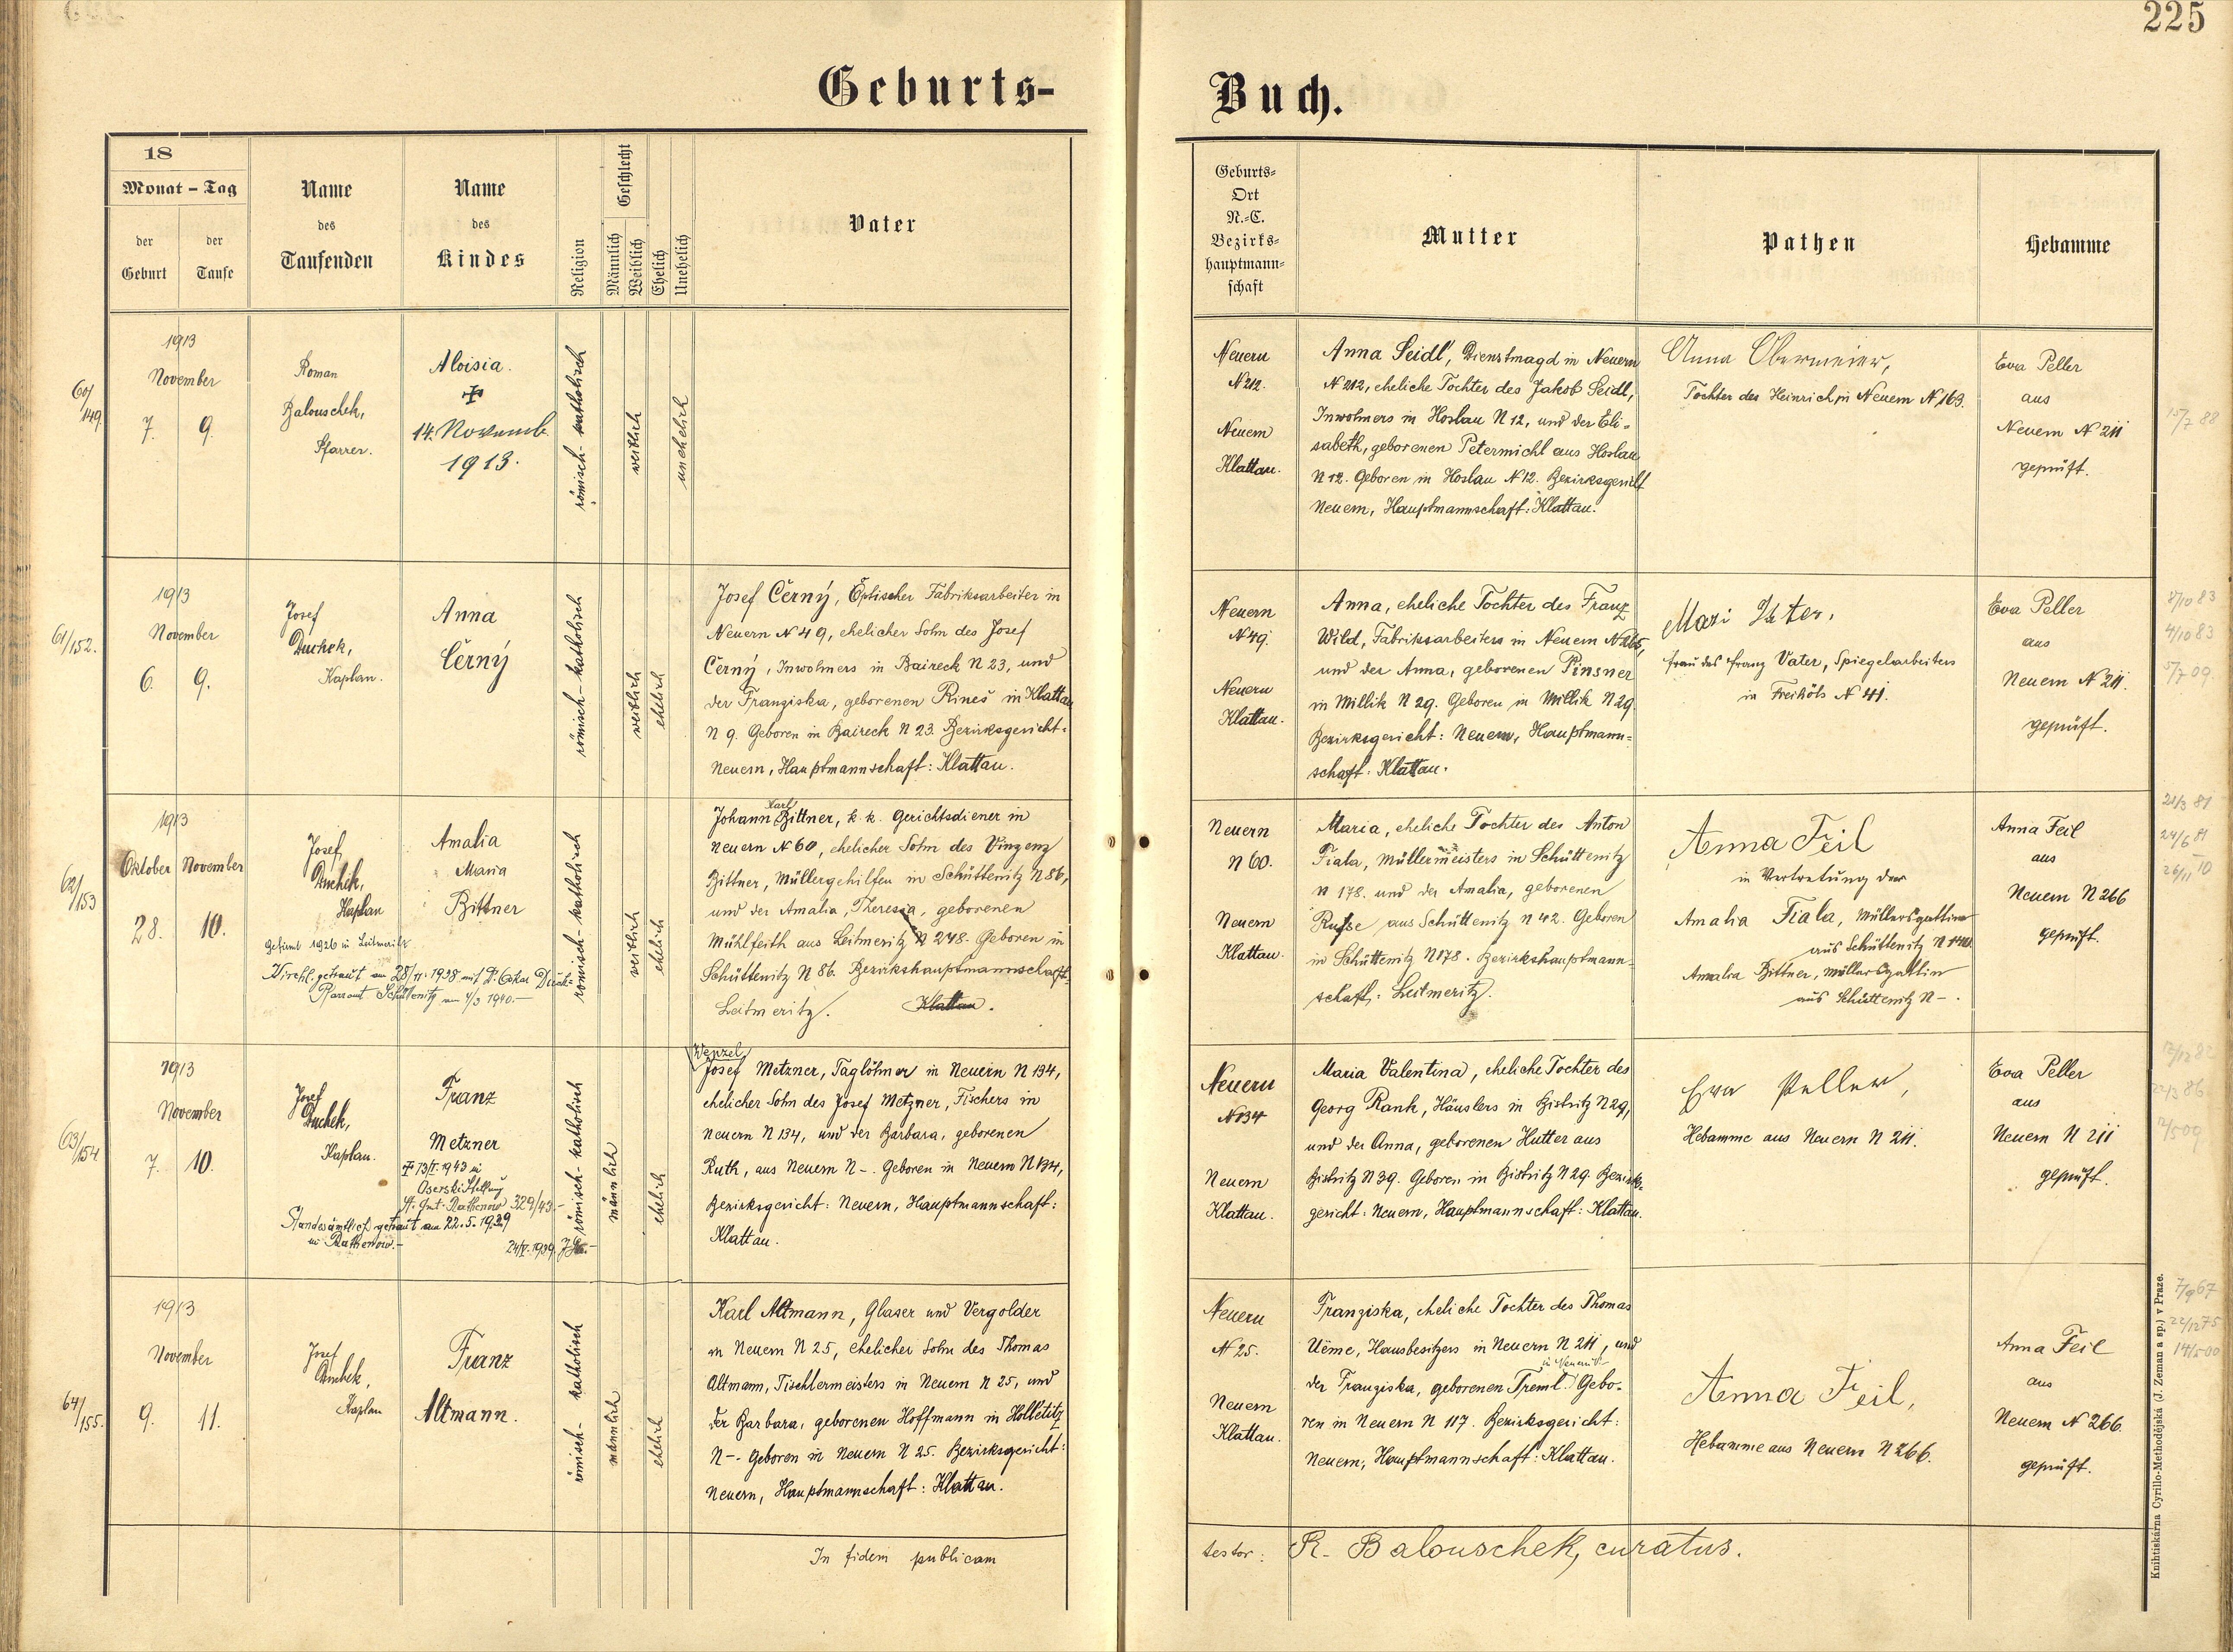 225
Geburts-
Buch.
18
Monat - Tag
der
Geburt
der
Taufe
Name
des
Taufenden
Name
des
Kindes
Religion
Geschlecht
Männlich
Weiblich
Ehelich
Unehelich
Vater
Geburts-
Ort
N.-C.
Bezirks-
hauptmann-
schaft
Mutter
Pathen
Hebamme
60/
149.
1913
November
7.
9.
Roman
Balouschek,
Pfarrer.
Aloisia.
✠
14. Novemb.
1913.
römisch-katholisch
weiblich
unehelich
Neuern
N 212.
Neuern
Klattau.
Anna Seidl, Dienstmagd in Neuern
N 212, eheliche Tochter des Jakob Seidl,
Inwohners in Hoslau N 12, und der Eli-
sabeth, geborenen Petermichl aus Hoslau
N 12. Geboren in Hoslau N 12. Bezirksgericht
Neuern, Hauptmannschaft: Klattau.
Anna Obermeier,
Tochter des Heinrich, in Neuern N 163.
Eva Peller
aus
Neuern N 211
geprüft.
15/7 88
61/152.
1913
November
6.
9.
Josef
Duchek,
Kaplan.
Anna
Černý
römisch-katholisch
weiblich
ehelich
Josef Černý, Optischer Fabriksarbeiter in
Neuern N 49, ehelicher Sohn des Josef
Černý, Inwohners in Baireck N 23, und
der Franziska, geborenen Rineš in Klattau
N 9. Geboren in Baireck N 23. Bezirksgericht:
Neuern, Hauptmannschaft: Klattau.
Neuern
N 49.
Neuern
Klattau.
Anna, eheliche Tochter des Franz
Wild, Fabriksarbeiters in Neuern N 265,
und der Anna, geborenen Pinsner
in Millik N 29. Geboren in Millik N 29.
Bezirksgericht: Neuern, Hauptmann-
schaft: Klattau.
Mari
Frau des Franz Vater, Spiegelarbeiters
in Freihöls N 41.
Eva Peller
aus
Neuern N 211.
geprüft.
8/10 83
4/10 83
5/7 09.
62/
153
1913
Oktober November
28.
10.
Josef
Duchek,
Kaplan
Amalia
Maria
Bittner
gefirmt 1926 in Leitmeritz
Kirchl. getraut am 28/11. 1938 mit
Pfarramt Schüttenitz am 4/3 1940.-
römisch-katholisch
weiblich
ehelich
Karl
Johann Bittner, k. k. Gerichtsdiener in
Neuern N 60, ehelicher Sohn des Vinzenz
Bittner, Müllergehilfen in Schüttenitz N 86,
und der Amalia, Theresia, geborenen
Mühlfeith aus Leitmeritz N 248. Geboren in
Schüttenitz N 86. Bezirkshauptmannschaft:
Leitmeritz. Klattau.
Neuern
N 60.
Neuern
Klattau.
Maria, eheliche Tochter des Anton
Fiala, Müllermeisters in Schüttenitz
N 178. und der Amalia, geborenen
Russe aus Schüttenitz N 42. Geboren
in Schüttenitz N 178. Bezirkshauptmann-
schaft: Leitmeritz.
Anna Feil
in Vertretung der
Amalia Fiala, Müllersgattin
aus Schüttenitz N 178
Amalia Bittner, Müllersgattin
aus Schüttenitz N -.
Anna Feil
aus
Neuern N 266
geprüft.
21/3 81
24/6 81
26/11 10
63/
154
1913
November
7.
10.
Josef
Duchek,
Kaplan.
Franz
Metzner
✠ 13/I. 1943 in
St. Amt. Rathenow 329/43.-
Standesamtlich getraut am 22.5.1939
in Rathenow.-
24/V. 1939
römisch-katholisch
männlich
ehelich
Wenzel
Josef Metzner, Taglöhner in Neuern N 134,
ehelicher Sohn des Josef Metzner, Fischers in
Neuern N 134, und der Barbara, geborenen
Ruth, aus Neuern N -. Geboren in Neuern N 134,
Bezirksgericht: Neuern, Hauptmannschaft:
Klattau.
Neuern
N 134
Neuern
Klattau.
Maria Valentina, eheliche Tochter des
Georg Rank, Häuslers in Bistritz N 29,
und der Anna, geborenen Hutter aus
Bistritz N 39. Geboren in Bistritz N 29. Bezirks-
gericht: Neuern, Hauptmannschaft: Klattau.
Eva Peller,
Hebamme aus Neuern N 211.
Eva Peller
aus
Neuern N 211
geprüft.
12/12 82
22/3 86
12/5 09
64/
155.
1913
November
9.
11.
Josef
Duchek,
Kaplan
Franz
Altmann.
römisch-katholisch
männlich
ehelich
Karl Altmann, Glaser und Vergolder
in Neuern N 25, ehelicher Sohn des Thomas
Altmann, Tischlermeisters in Neuern N 25, und
der Barbara, geborenen Hoffmann in Holletitz
N -. Geboren in Neuern N 25. Bezirksgericht:
Neuern, Hauptmannschaft: Klattau.
Neuern
N 25.
Neuern
Klattau.
Franziska, eheliche Tochter des Thomas
Hausbesitzers in Neuern N 211, und
in Neuern
der Franziska, geborenen Treml. Gebo-
ren in Neuern N 117. Bezirksgericht:
Neuern, Hauptmannschaft: Klattau.
Anna Feil,
Hebamme aus Neuern N 266.
Anna Feil
aus
Neuern N 266.
geprüft.
7/9 67
22/12 75
14/5 00
In fidem publicam
testor: R. Balouschek, curatus.
Knihtiskárna Cyrillo-Methodějská (J. Zeman a sp.) v Praze.